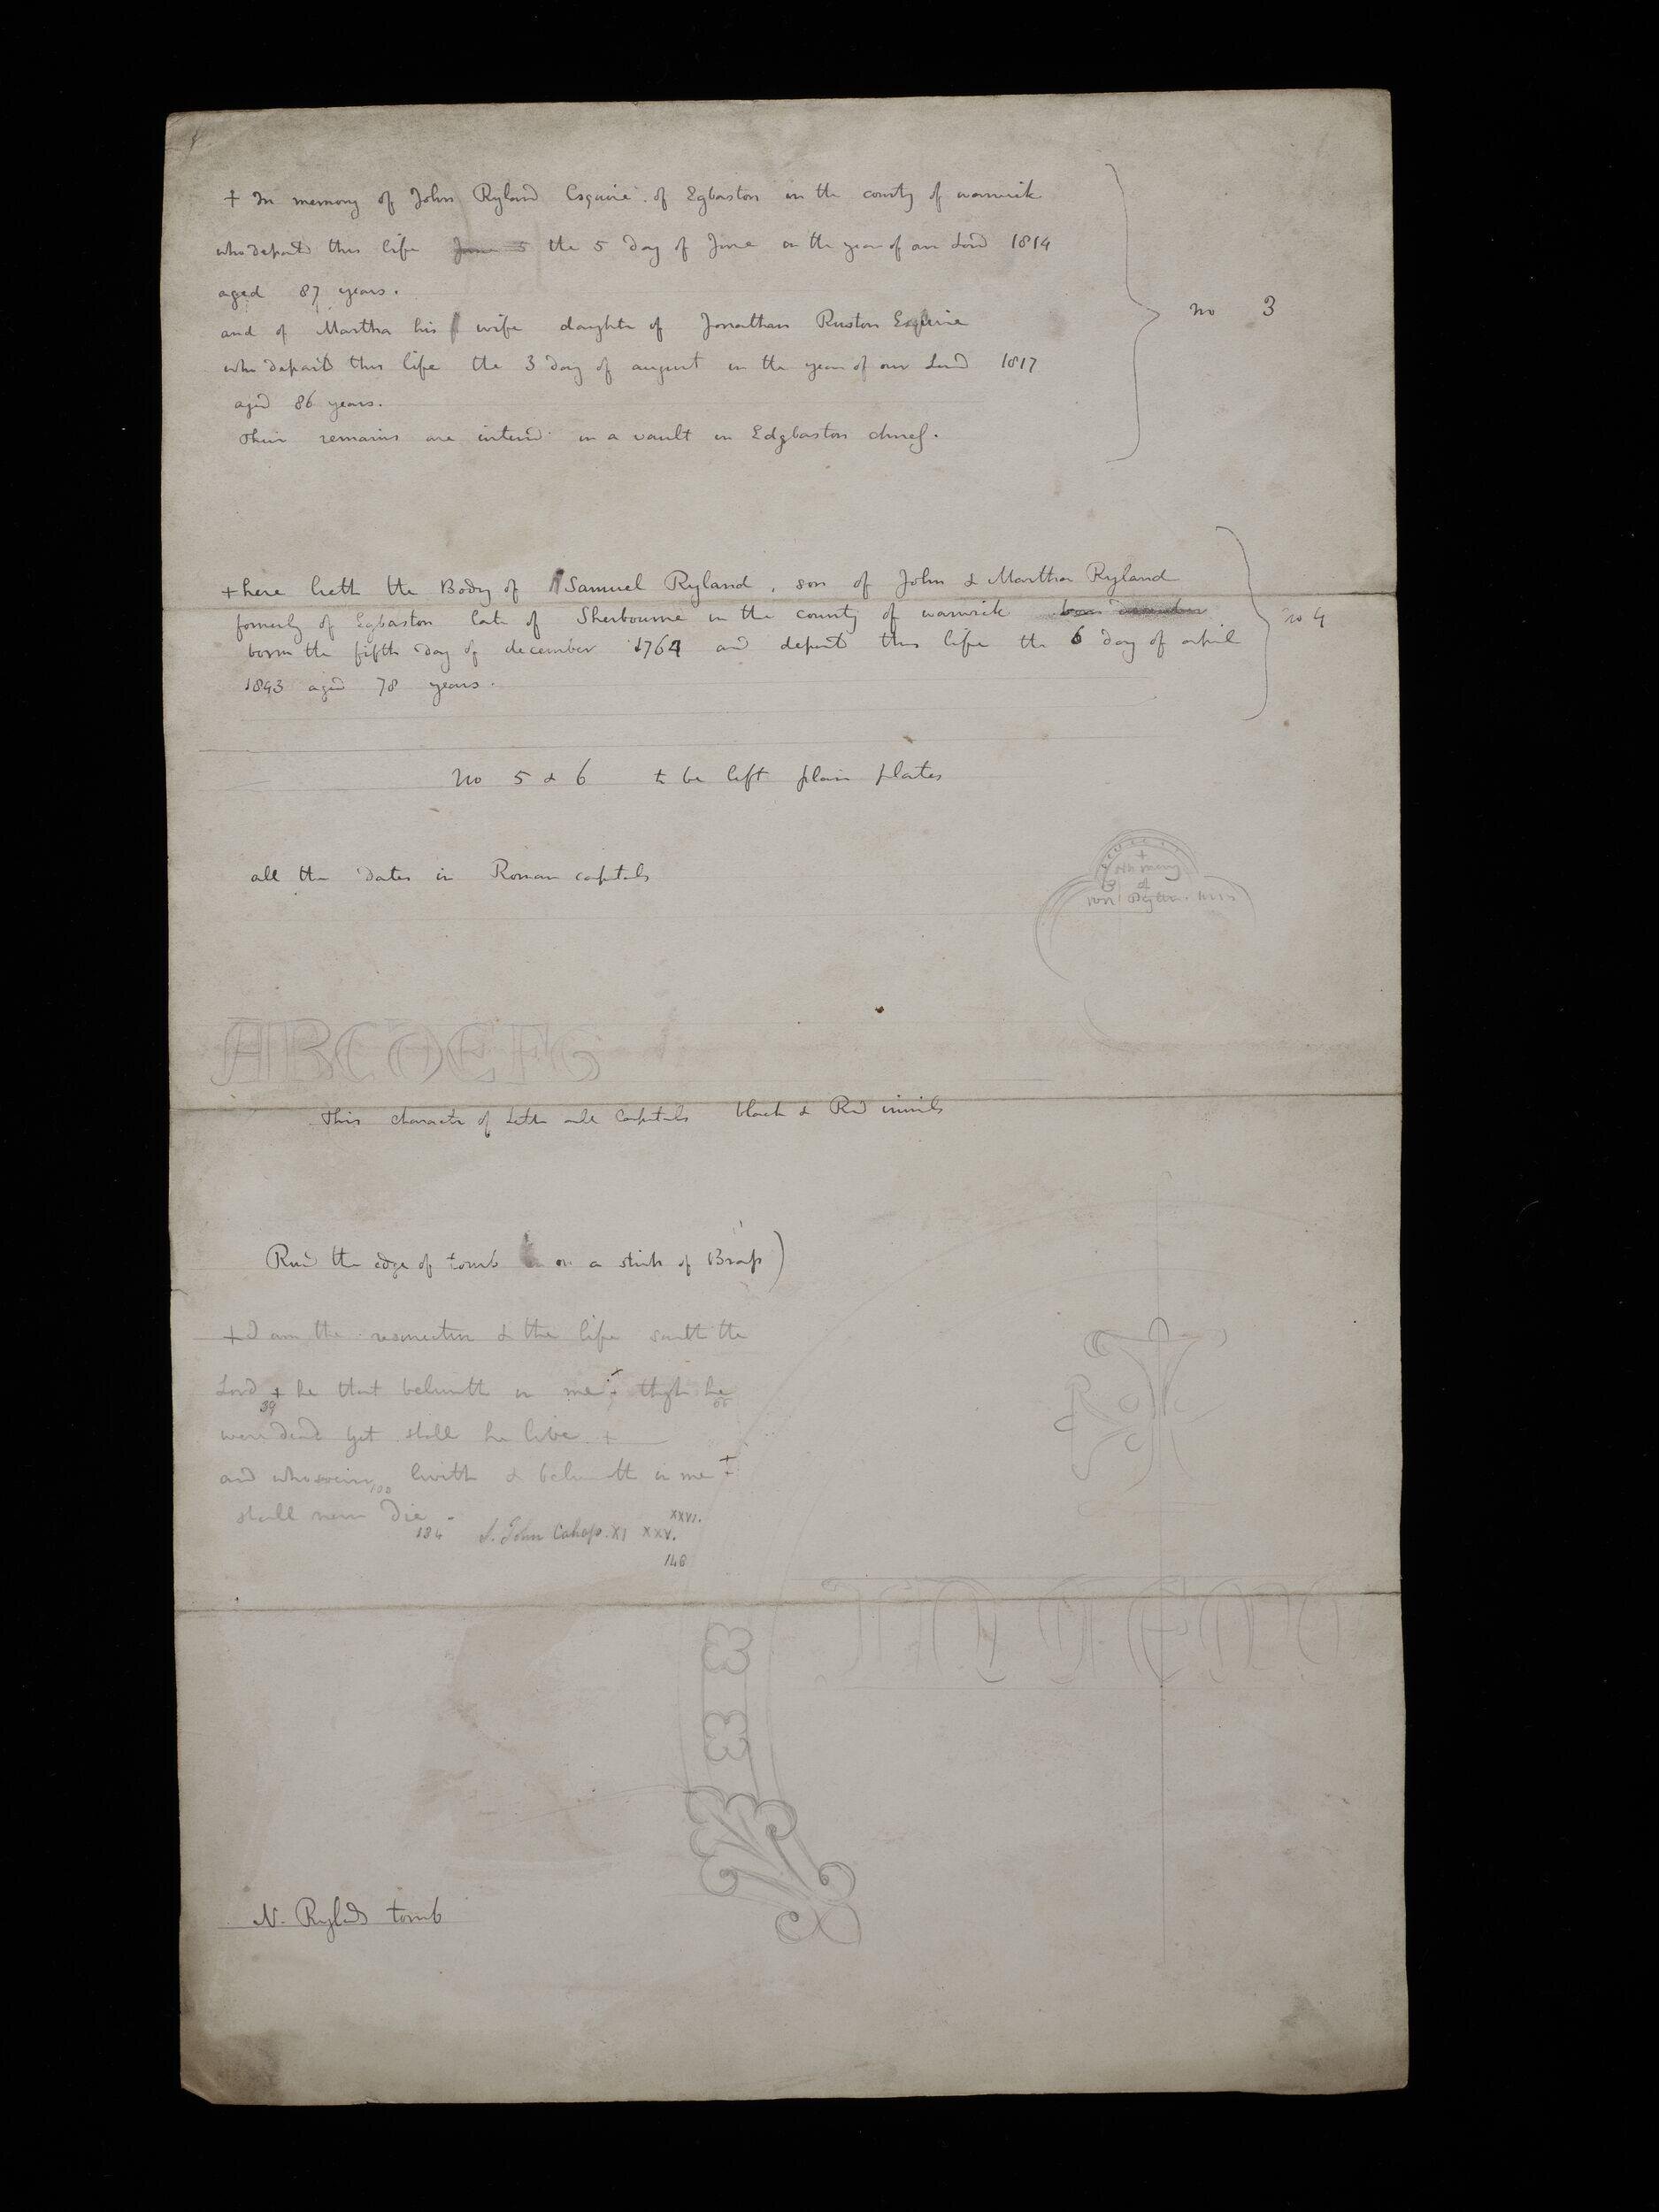 + In memory of John Ryland Esquire of Egbaston in the county of warwick
who depart'd this life June 5 the 5 day of June in the year of our Lord 1814
aged 87 years.
and of Martha his wife daughter of Jonathan Ruston Esquire
who depart'd this life the 3 day of august in the year of our Lord 1817
aged 86 years.
Their remains are interred in a vault in Edgbaston church.
no 3
+ here lieth the Body of Samuel Ryland, son of John & Martha Ryland
formerly of Egbaston late of Sherbourne in the county of warwick born
born the fifth day of december 1764 and depart'd this life the 6 day of april
1843 aged 78 years.
no 4
No 5 & 6 to be left plain plates
all the dates in Roman capitals
+
of
ABCDEFG
This character of Letter all Capitals black & Red initials
Round the edge of tomb on a strip of Brass)
+ I am the resurrection & the life saith the
Lord + he that believeth in me + though he
39
were dead yet shall he live +
and whosoever liveth & believeth in me +
100
shall never Die -
134 S. John Cahap. XI XXV.
XXVI.
146
N. Rylands tomb